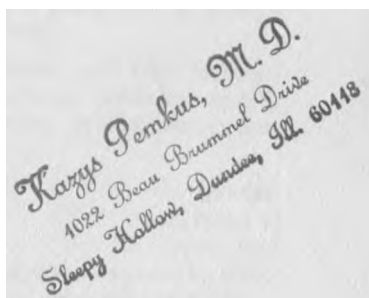 Kazys Pemkus, M. D.
1022 Beau Brummel Drive
Sleepy Hollow, Dundee, Ill. 60118